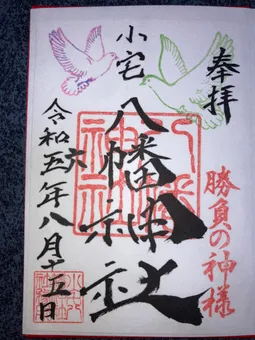 奉拝
勝負の神様
小宅
八幡神社
六
令和五年八月十五日